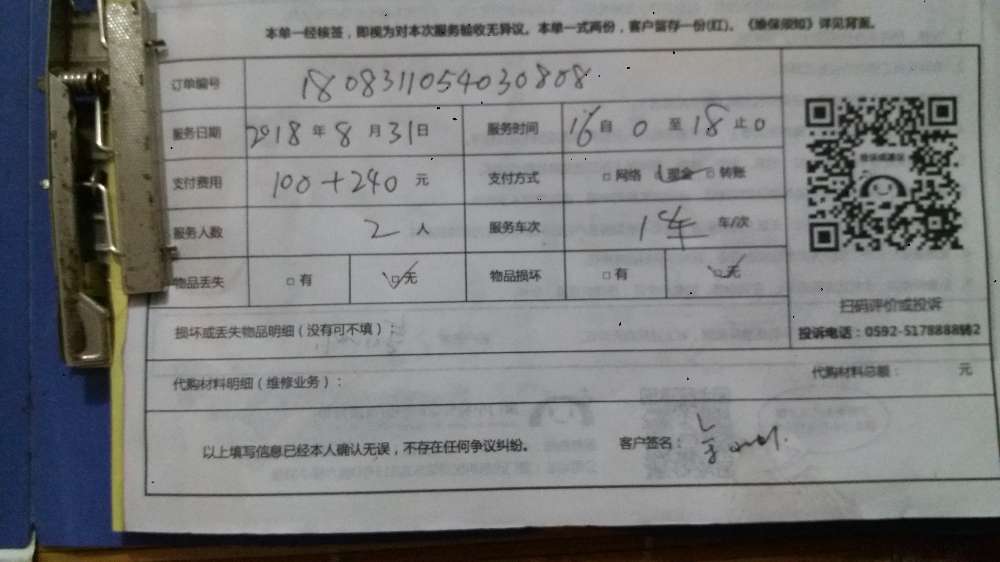 本单一经核签，即视为对本次服务验收无异议。本单一式两份，客户留存一份(红)。《维保须知》详见背面。
订单编号 1808311054030808
服务日期 2018年8月31日 服务时间 16自0至18止0
支付费用 100+240元 支付方式 □网络 □现金 □转账
服务人数 2人 服务车次 1车 车/次
物品丢失 □有 □无 物品损坏 □有 □无
扫码评价或投诉
投诉电话：0592-5178888转2
损坏或丢失物品明细（没有可不填）：
代购材料明细（维修业务）： 代购材料总额： 元
以上填写信息已经本人确认无误，不存在任何争议纠纷。 客户签名：